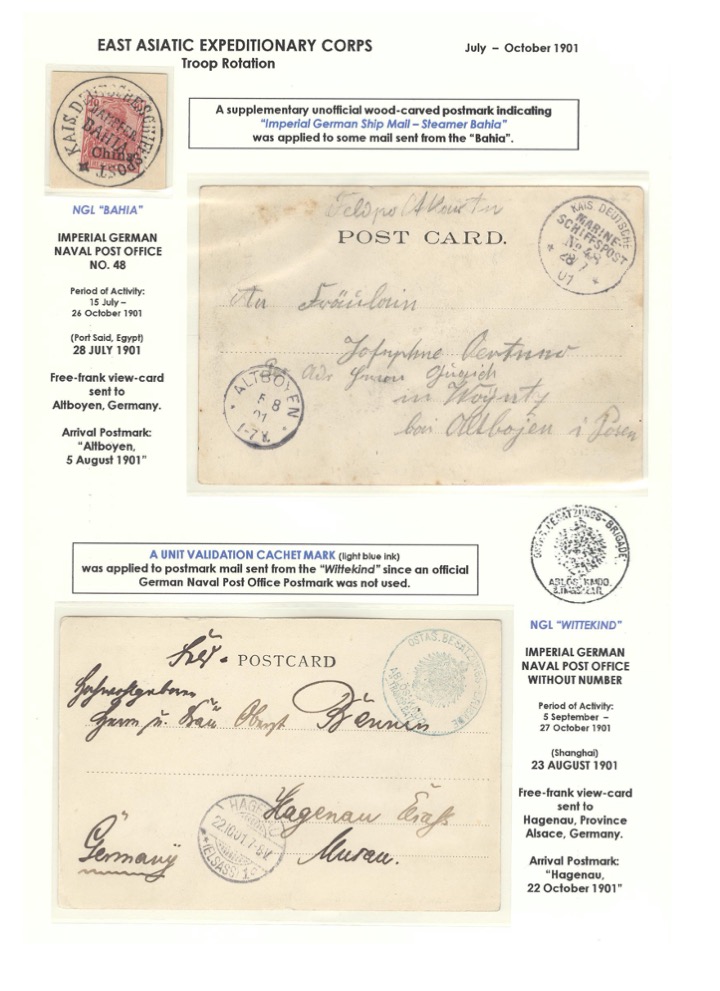 EAST ASIATIC EXPEDITIONARY CORPS
July – October 1901
Troop Rotation
KAIS. DEUTSCHE SCHIFFSPOST
DAMPFER
BAHIA
China
A supplementary unofficial wood-carved postmark indicating
"Imperial German Ship Mail – Steamer Bahia"
was applied to some mail sent from the "Bahia".
NGL "BAHIA"
IMPERIAL GERMAN
NAVAL POST OFFICE
NO. 48
Period of Activity:
15 July –
26 October 1901
(Port Said, Egypt)
28 JULY 1901
Free-frank view-card
sent to
Altboyen, Germany.
Arrival Postmark:
"Altboyen,
5 August 1901"
POST CARD.
KAIS. DEUTSCHE
MARINE-
SCHIFFSPOST
No 48
28 7
01
An Fräulein
in
bei Altbojen i Posen
ALTBOYEN
5 8
01
1-7V.
A UNIT VALIDATION CACHET MARK (light blue ink)
was applied to postmark mail sent from the "Wittekind" since an official
German Naval Post Office Postmark was not used.
OSTAS. BESATZUNGS-BRIGADE
ABLÖS. KMDO.
NGL "WITTEKIND"
IMPERIAL GERMAN
NAVAL POST OFFICE
WITHOUT NUMBER
Period of Activity:
5 September –
27 October 1901
(Shanghai)
23 AUGUST 1901
Free-frank view-card
sent to
Hagenau, Province
Alsace, Germany.
Arrival Postmark:
"Hagenau,
22 October 1901"
POSTCARD
OSTAS. BESATZUNGS-BRIGADE
Herrn u. Frau Oberst Bennin
Hagenau Elsaß
HAGENAU
22.10.01.7-8V.
(ELSASS)
Germany